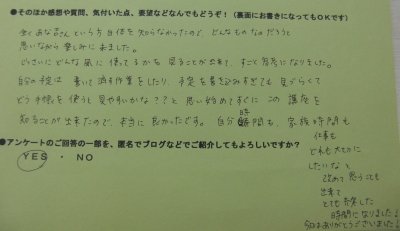 ●そのほか感想や質問、気付いた点、要望などなんでもどうぞ！（裏面にお書きになってもOKです）
全くあな吉さんという方自体を知らなかったので、どんなものなのだろうと
思いながら楽しみに来ました。
どこさんにどんな風に使ってるかを見ることが出来て、すごく参考になりました。
自分の予定は書いて消す作業をしたり、予定を書き込みすぎても見づらくて
どう手帳を使うと見やすいかな？？と思い始めてすぐにこの講座を
知ることが出来たので、本当に良かったです。自分時間も、家族時間も
仕事も
どれも大切に
したいなと
改めて思うことも
出来て
とても充実した
時間になりました！
今日はありがとうございました！
●アンケートのご回答の一部を、匿名でブログなどでご紹介してもよろしいですか？
YES ・ NO